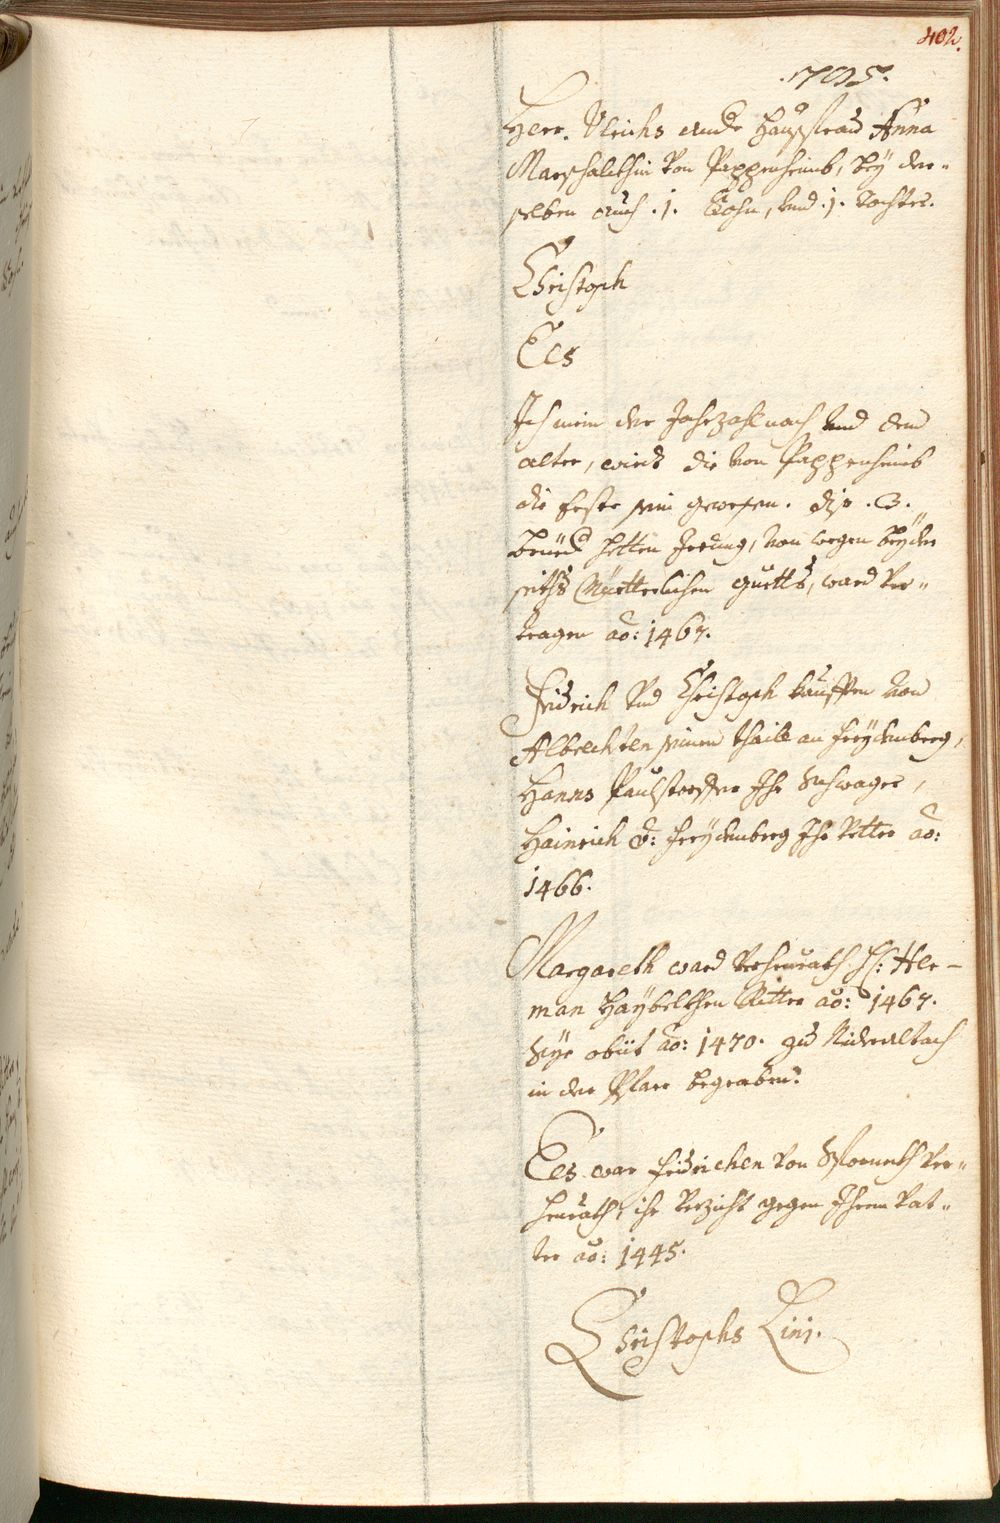 402.
.1705.
Herr. Ulrichs ande Haußfrau Anna
Marschalckhin von Pappenheimb, bey der-
selben auch .1. Sohn, und .1. Tochter.
Christoph
Els
Ich mein der Jahrzahl nach und dem
alter, wirdt die von Pappenheimb
die Erste sein gewesen. dise .3.
brüed hetten Irrung, von wegen beyder
seiths Müetterlichen guetts, ward ver-
tragen aō: 1467.
Fridrich und Christoph kaufften von
Albrechten seinen thaill an Freydenberg,
Hanns Paulstorffer Ihr Schwager,
Hainrich v: Freydenberg Ihr Vetter aō:
1466.
Margareth ward verheurath H: Her-
man Haybeckhen Ritter aō: 1467.
Sye obiit aō: 1470. zu Nideraltach
in der Pfarr begraben.
Els war Fridrichen von ver-
heurath, ihr Verzicht gegen Ihrem Vat-
ter aō: 1445.
Christophs Lini.